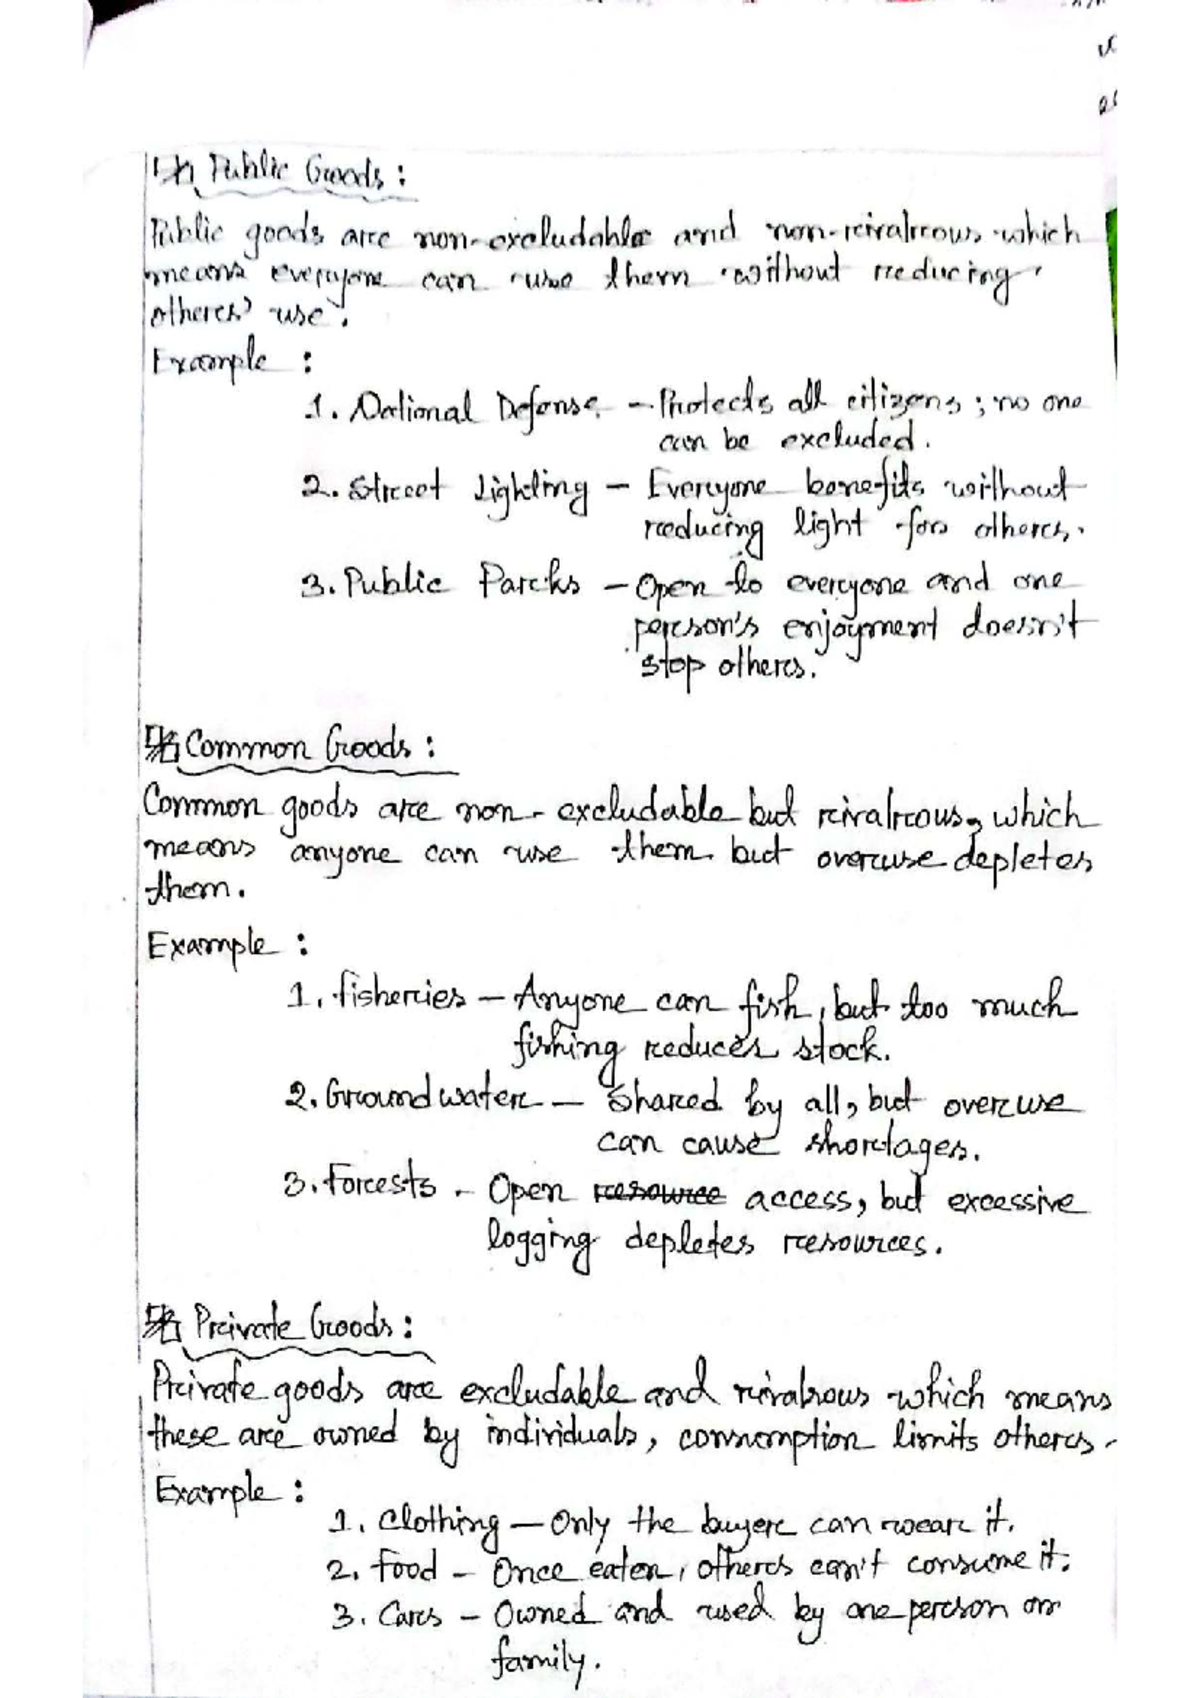 Public Goods :
Public goods are non-excludable and non-rivalrous which
means everyone can use them without reducing
others' use.
Example :
1. National Defense - Protects all citizens ; no one
can be excluded.
2. Street Lighting - Everyone benefits without
reducing light for others.
3. Public Parks - Open to everyone and one
person's enjoyment doesn't
stop others.
Common Goods :
Common goods are non-excludable but rivalrous, which
means anyone can use them but overuse depletes
them.
Example :
1. Fisheries - Anyone can fish, but too much
fishing reduces stock.
2. Groundwater - Shared by all, but overuse
can cause shortages.
3. Forests - Open resource access, but excessive
logging depletes resources.
Private Goods :
Private goods are excludable and rivalrous which means
these are owned by individuals, consumption limits others.
Example :
1. Clothing - Only the buyer can wear it.
2. Food - Once eaten, others can't consume it.
3. Cars - Owned and used by one person or
family.